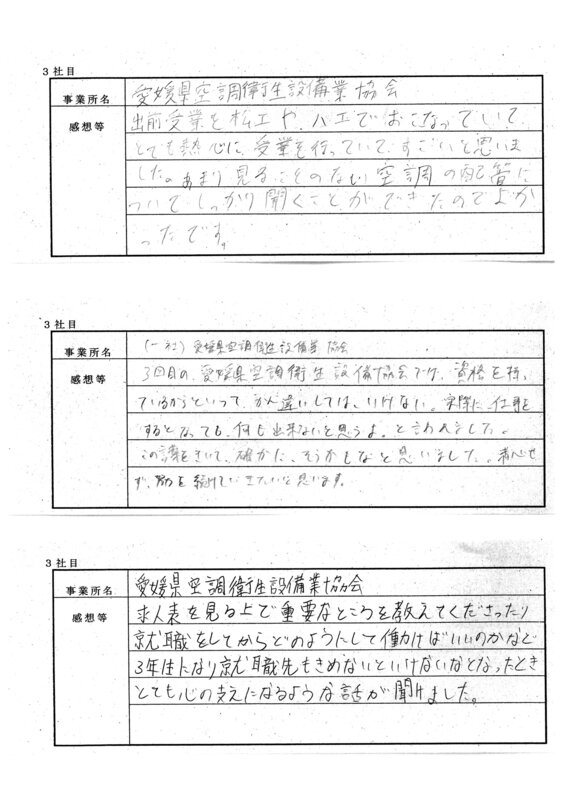 3社目
事業所名 愛媛県空調衛生設備業協会
感想等 出前受業を松工や、八工でおこなっていて、
とても熱心に、受業を行っていて、すごいと思いま
した。あまり見ることのない空調の配管に
ついてしっかり聞くことができたのでよか
ったです。
3社目
事業所名 (一社)愛媛県空調衛生設備業協会
感想等 3回目の、愛媛県空調衛生設備協会では、資格を持っ
ているからといって、かん違いしては、いけない。実際に、仕事を
するとなっても、何も出来ないと思うよ。と言われました。
この話をきいて、確かに、そうかもなと思いました。
努力を続けていきたいと思います。
3社目
事業所名 愛媛県空調衛生設備業協会
感想等 求人表を見る上で重要なところを教えてくださったり
就職をしてからどのようにして働けばいいのかなど
3年生になり就職先もきめないといけないなとなったとき
とても心の支えになるような話が聞けました。